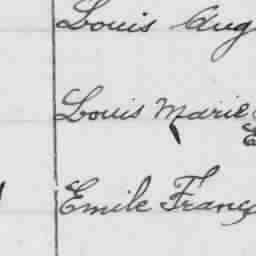 Louis Aug
Louis Marie
Emile Franç